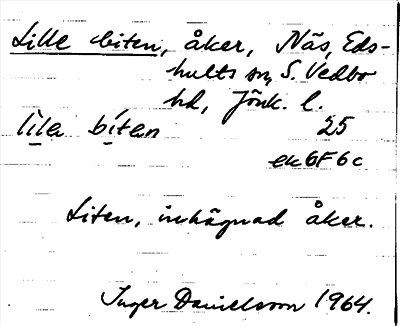 Lille biten, åker, Näs, Eds-
hults sn, S. Vedbo
hd, Jönk. l.
lila biten 25
ek 6F6c
Liten, inhägnad åker.
Inger Danielsson 1964.